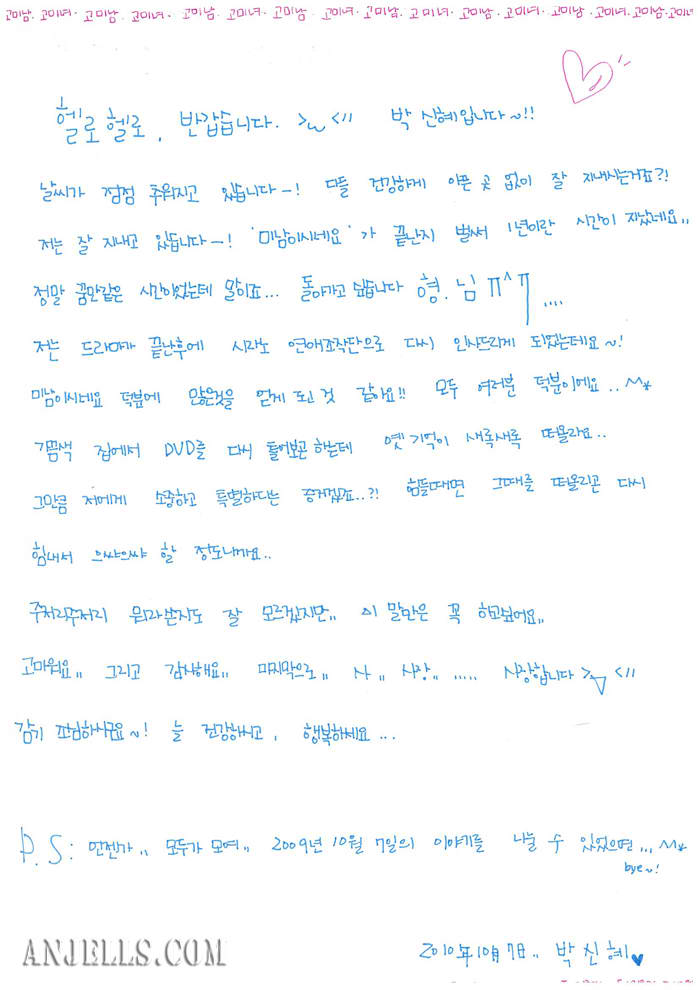 고미남. 고미녀. 고미남. 고미녀. 고미남. 고미녀. 고미남. 고미녀. 고미남. 고미녀. 고미남. 고미녀. 고미남. 고미녀. 고미남. 고미녀
헬로헬로, 반갑습니다. >ω<!! 박신혜입니다~!!
날씨가 점점 추워지고 있습니다~! 다들 건강하게 아픈 곳 없이 잘 지내시는거죠?!
저는 잘 지내고 있습니다~! '미남이시네요'가 끝난지 벌써 1년이란 시간이 지났네요,,
정말 꿈만같은 시간이었는데 말이죠... 돌아가고 싶습니다 형.님 ㅠ^ㅠ ....
저는 드라마가 끝난후에 시라노 연애조작단으로 다시 인사드리게 되었는데요~!
미남이시네요 덕분에 많은것을 얻게 되는 것 같아요!! 모두 여러분 덕분이에요.. ^^*
가끔씩 집에서 DVD를 다시 돌려보곤 하는데 옛 기억이 새록새록 떠올라요..
그만큼 저에게 소중하고 특별하다는 증거겠죠..?! 힘들때면 그때를 떠올리곤 다시
힘내서 으쌰으쌰 할 정도니까요..
주저리주저리 뭐라쓴지도 잘 모르겠지만,, 이 말만은 꼭 하고싶어요,,
고마워요,, 그리고 감사해요,, 마지막으로,, 사,, 사랑,, ..... 사랑합니다 >▽<!!
감기 조심하시구요~! 늘 건강하시고, 행복하세요...
P.S: 언젠가,, 모두가 모여,, 2009년 10월 7일의 이야기를 나눌 수 있었으면... ^^*
bye~!
2010年10月7日,, 박신혜♥
ANJELLS.COM